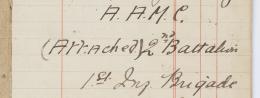 A. A. M. C.
(Attached) 2nd Battalion
1st Inf Brigade